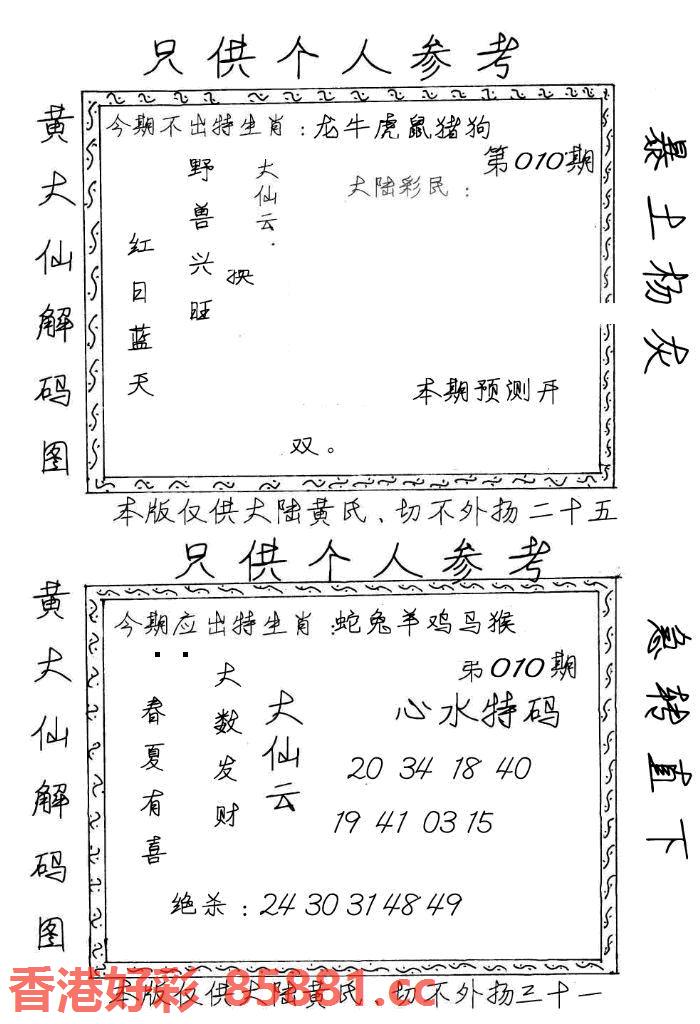 只供个人参考
黄大仙解码图
今期不出特生肖：龙牛虎鼠猪狗
第010期
大陆彩民：
大仙云.
野兽兴旺
红日蓝天
本期预测开
双。
暴土杨灰
本版仅供大陆黄氏、切不外扬二十五
只供个人参考
黄大仙解码图
今期应出特生肖:蛇兔羊鸡马猴
弟010期
心水特码
大仙云
大数发财
春夏有喜
20 34 18 40
19 41 03 15
绝杀：24 30 31 48 49
急转直下
本版仅供大陆黄氏、切不外扬三十一
香港好彩 85881.cc